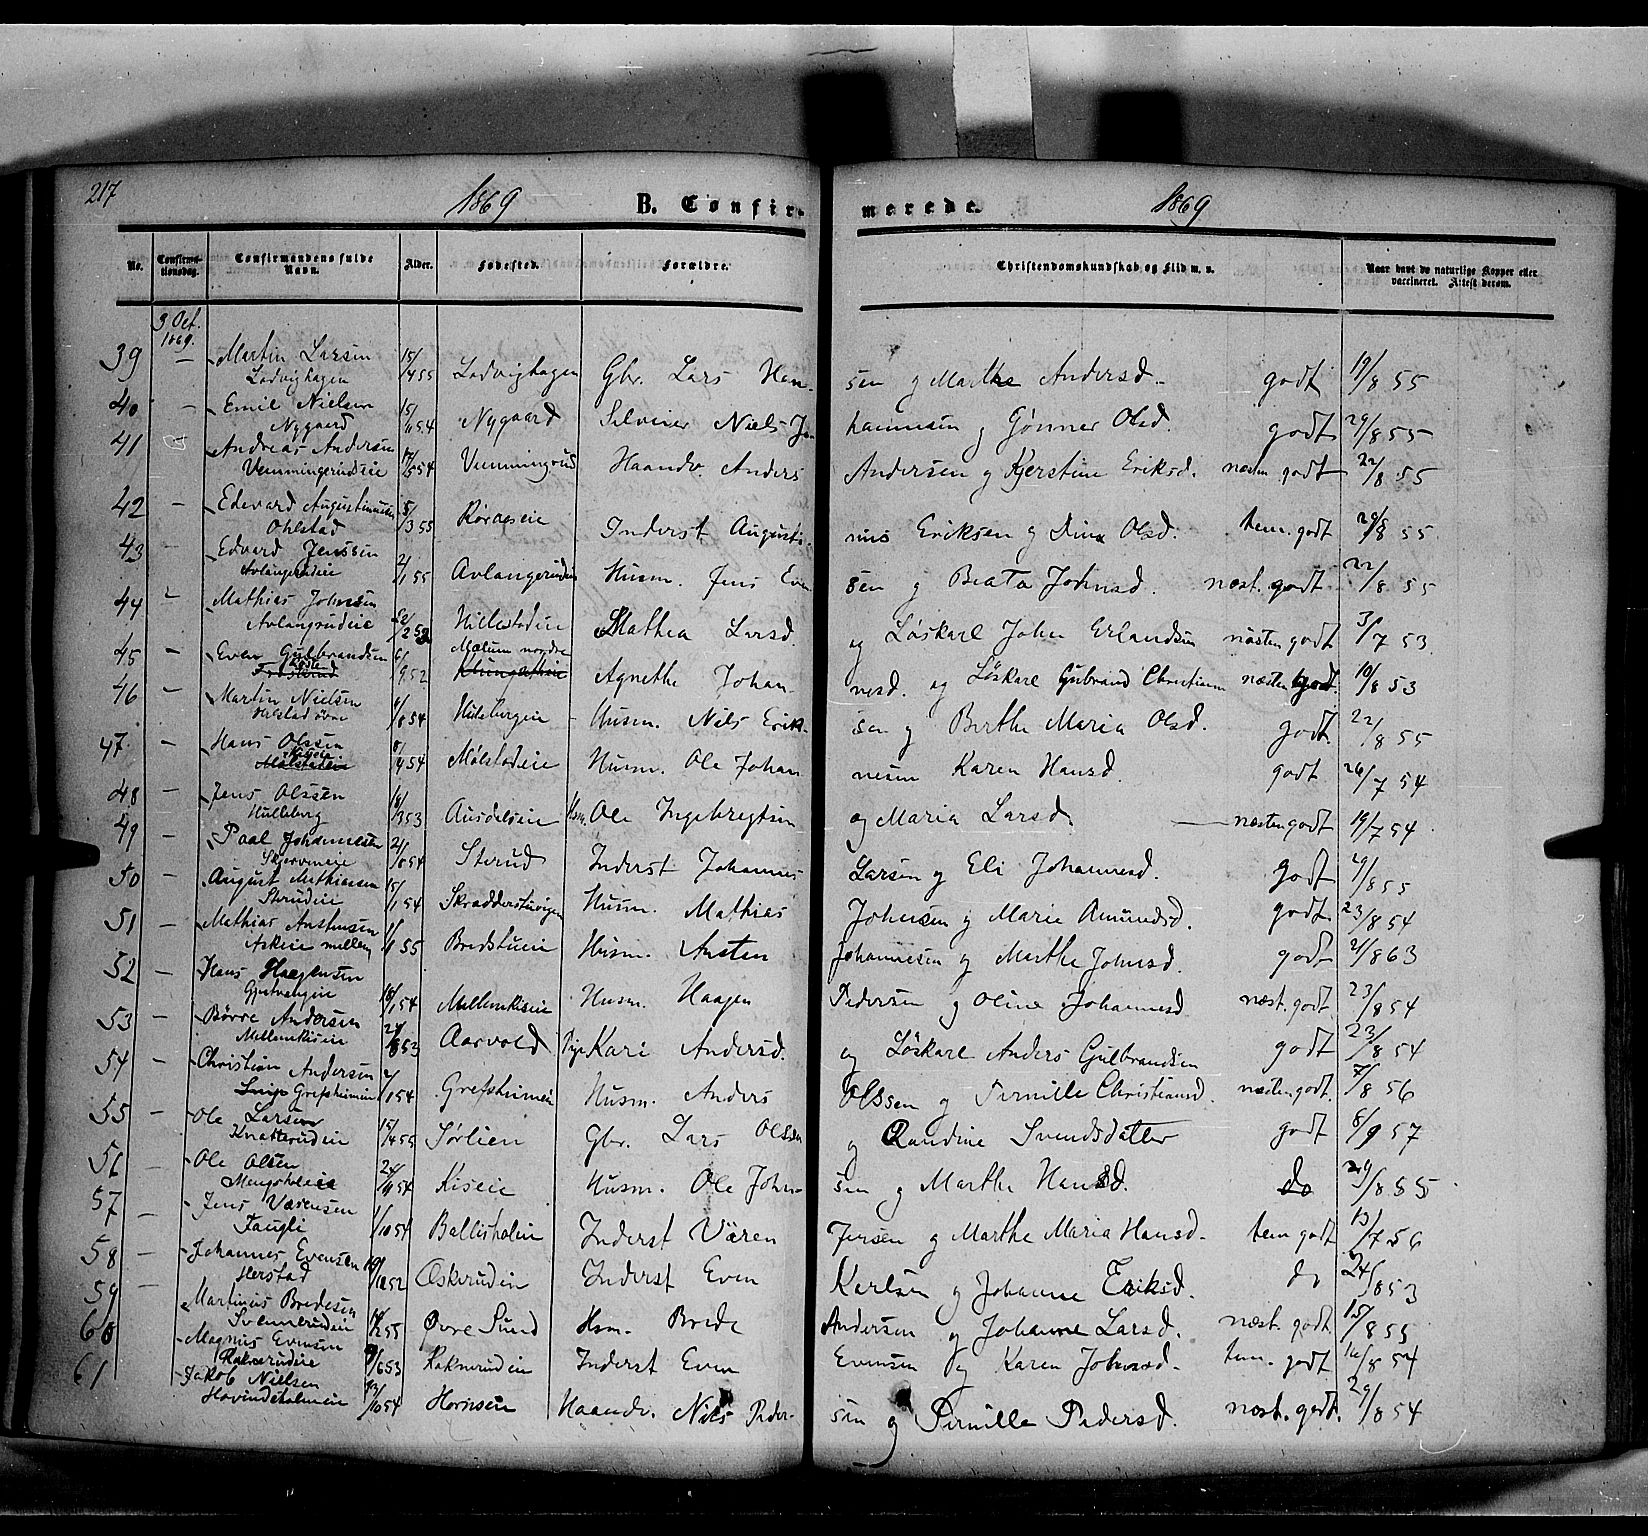 217 1869 B. Confirmerede. 1869
No. Confirmationsdag. Confirmandens fulde Navn. Alder. Fødested. Forældre. Christendomskundskab og Flid m. v. Naar havt de naturlige Kopper eller vaccineret. Attest derom.
3 Oct. 1869.
39 — Martin Larsen 15/4 55 Ladvighagen Gbr. Lars Han- sen og Marthe Andersd. godt 19/8 55
Ladvighagen
40 — Emil Nielsen 15/11 54 Nygaard Selveier Niels Jo hannesen og Gønner Olsd. godt 29/8 55
Nygaard
41 Andreas Andersen 17/5 54 Vemmingrud Haandv. Anders Andersen og Kjerstine Eriksd. næsten godt 22/8 55
Vemmingerudseie
42 — Edevard Augustinusen 5/3 55 Røraeseie Inderst Augusti- nus Eriksen og Dina Olsd. tem. godt 29/8 55
Ohlstad
43 — Edvard Jenssen 2/1 55 Avlangeruden Husm. Jens Even sen og Beata Johnsd. næst. godt 22/8 55
Avlangerudeie
44 Mathias Johnsen 22/2 52 Hillestadeie Mathea Larsd. og Løskarl John Erlandsen næsten godt 3/7 53
Avlangrudeie
45 — Even Gulbrandsen 6/9 52 Mælum nordre Agnethe Johan- nesd. og Løskarl Gubrand Christiansen næsten godt. 10/8 53
46 — Martin Nielsen 4/8 54 Hulebergeie Husm. Niels Erik- sen og Berthe Maria Olsd. godt. 22/8 55
Halstad øvre
47. — Hans Olssen 8/4 54 Mølstadeie Husm. Ole Johan nesen Karen Hansd. godt 26/7 54
Mølstadeie
48 — Jens Olssen 18/3 53 Ausdalseie Hsm. Ole Ingebregtsen og Maria Larsd. — næsten godt 19/7 54
Hulleberg
49 — Paal Johannesen 21/8 54 Sterud Inderst Johannes Larsen og Eli Johannesd. godt 9/8 55
Skjerveneie
50 — August Mathiassen 15/1 54 Skrædderstuvigen Husm. Mathias Johnsen og Marie Amundsd. godt. 23/8 54
Sterudeie
51 — Mathias Anstensen 1/1 55 Bredstueie Husm. Ansten Johannesen og Marthe Johnsd. godt 21/8 63
Askeie mellem
52 — Hans Haagensen 18/1 54 Mellemkiseie Husm. Haagen Pedersen og Oline Johannesd. næst. godt 23/8 54
53 — Børre Andersen 24/8 53 Aasvold Pige Kari Andersd. og Løskarl Anders Gulbrandsen godt 23/8 54
Mellemkiseie
54 — Christian Andersen 2/1 54 Grefsheimeie Husm. Anders Olssen og Pernille Christiansd. næsten godt. 7/8 56
Grefsheimeie
55 — Ole Larsen 15/4 55 Sørlien Gbr. Lars Olssen og Randine Svendsdatter godt 8/9 57
Knatterudeie
56 — Ole Olsen 24/11 54 Kiseie Husm. Ole John- sen og Marthe Hansd. do 29/8 55
Mengsholeie
57 — Jens Værensen 1/10 54 Ballisholen Inderst Væren Jensen og Marthe Maria Hansd. tem godt 13/7 56
Fangli
58 — Johannes Evensen 19/12 52 Oskerudein Inderst Even Karlsen og Johanne Eriksd. do 24/8 53
Herstad
59 — Martinus Bredesen 14/2 55 Øvre Sund Hsm. Brede Andersen og Johanne Larsd. næst. godt. 15/8 55
Svennerudeie
60 Magnus Evensen 9/6 53 Raknerudein Inderst Even Evensen og Karen Johnsd. tem. godt 16/8 54
Raknerudeie
61 Jakob Nielsen 23/10 54 Hornseie Haandv. Niels Peder- sen og Pernille Pedersd. næst. godt. 29/8 54
Hovindsholmeie